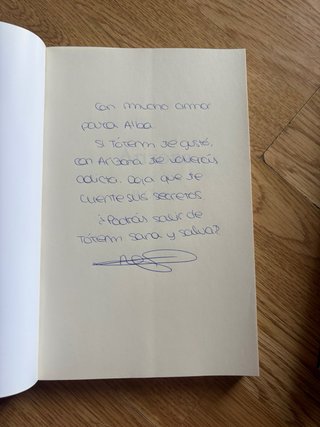 Con mucho amor
para Alba.
Si Tótem te gustó,
con Arizona te volverás
adicta. Deja que te
cuente sus secretos
¿Podrás salir de
Tótem sana y salva?